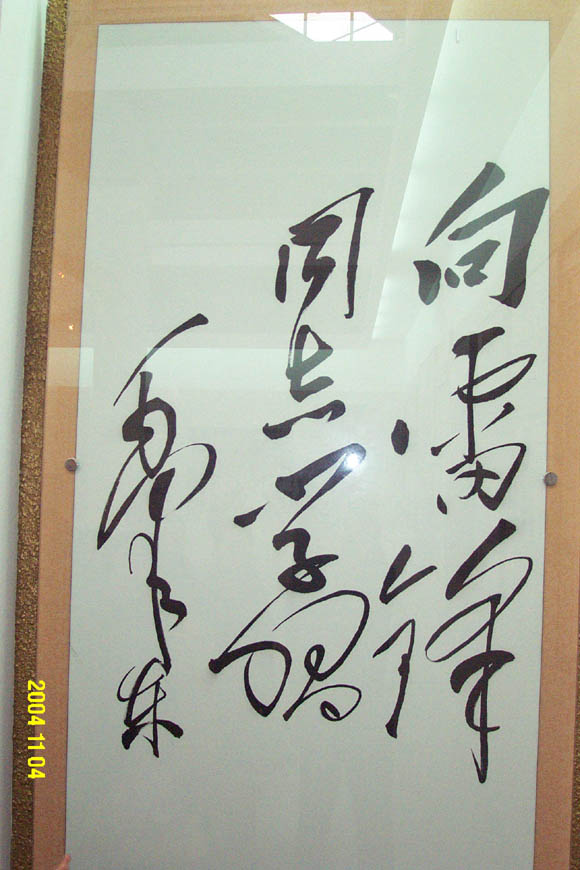 向雷锋
同志学习
毛泽东
2004 11 04